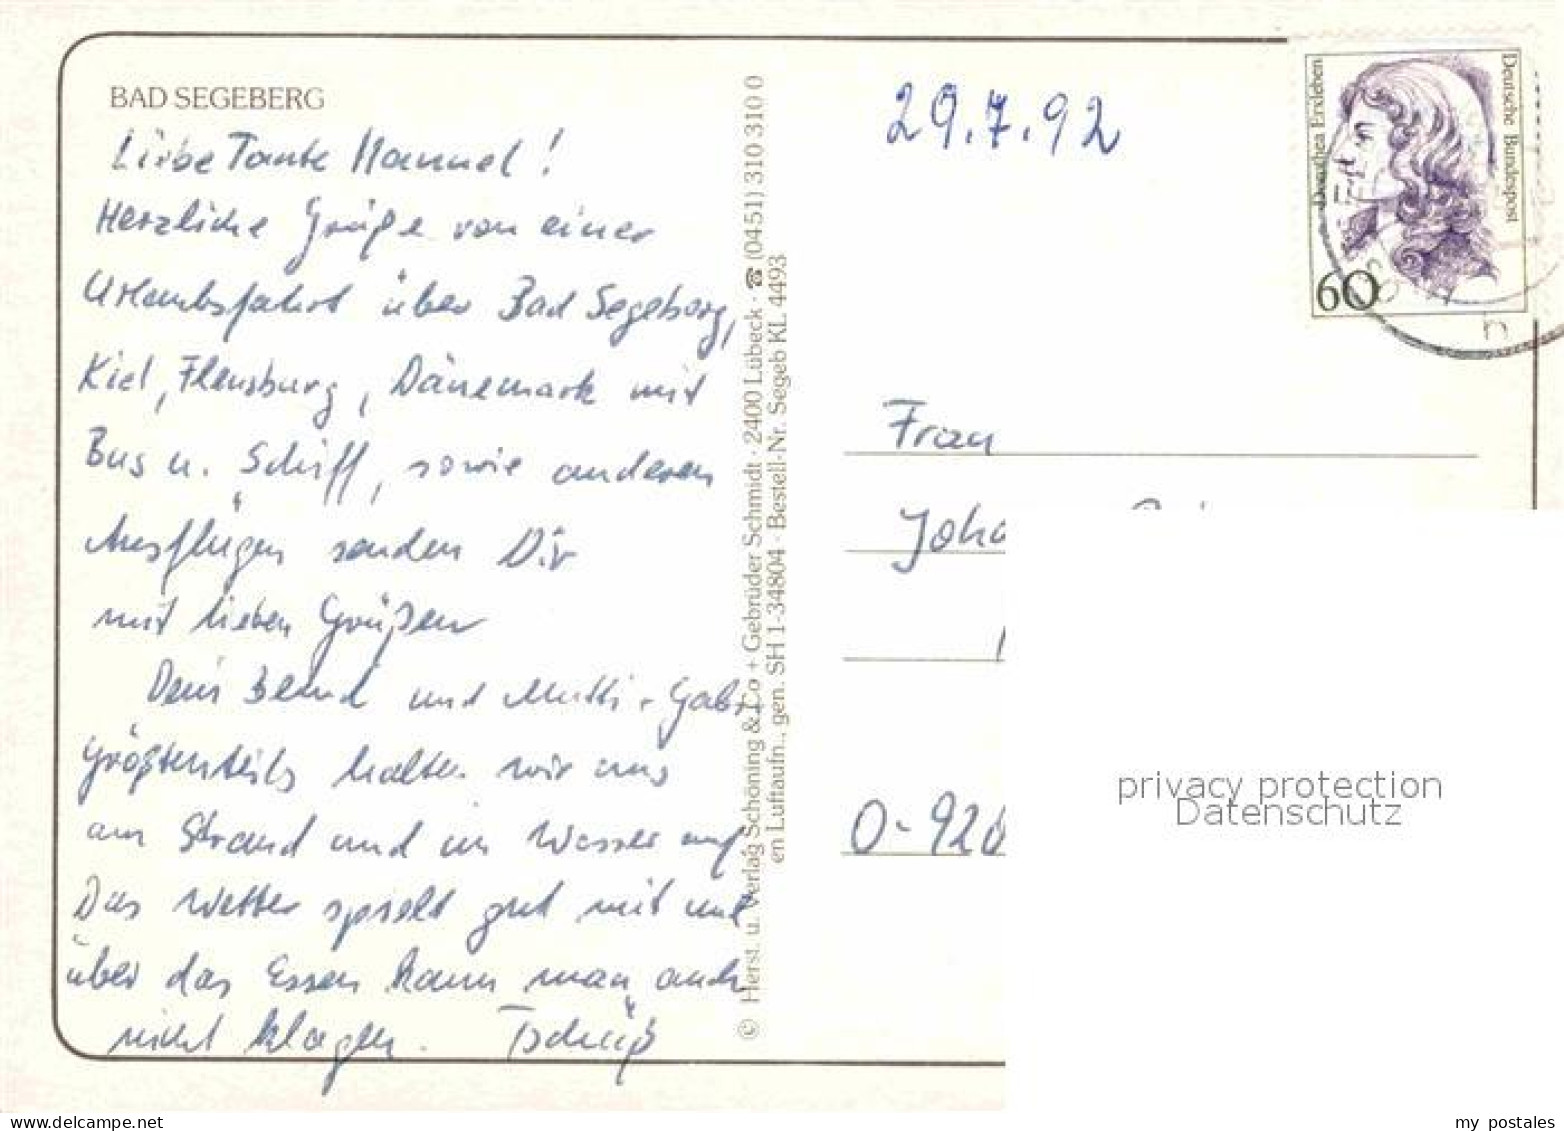 BAD SEGEBERG
Liebe Tante Hannel!
Herzliche Grüße von einer
Urlaubsfahrt über Bad Segeberg,
Kiel, Flensburg, Dänemark mit
Bus u. Schiff, sowie anderen
Ausflügen senden Dir
mit lieben Grüßen
Dein Bernd und Mutti + Gabi
Größtenteils halten wir uns
am Strand und im Wasser auf
Das Wetter spielt gut mit und
über das Essen kann man auch
nicht klagen. Tschüß
© Herst. u. Verlag Schöning & Co + Gebrüder Schmidt · 2400 Lübeck · ☎ (0451) 310 310 0
en Luftaufn., gen. SH 1-34804 · Bestell-Nr. Segeb KL 4493
29.7.92
Dorothea Erxleben
Deutsche Bundespost
60
Frau
Joha
O-920
privacy protection
Datenschutz
my postales